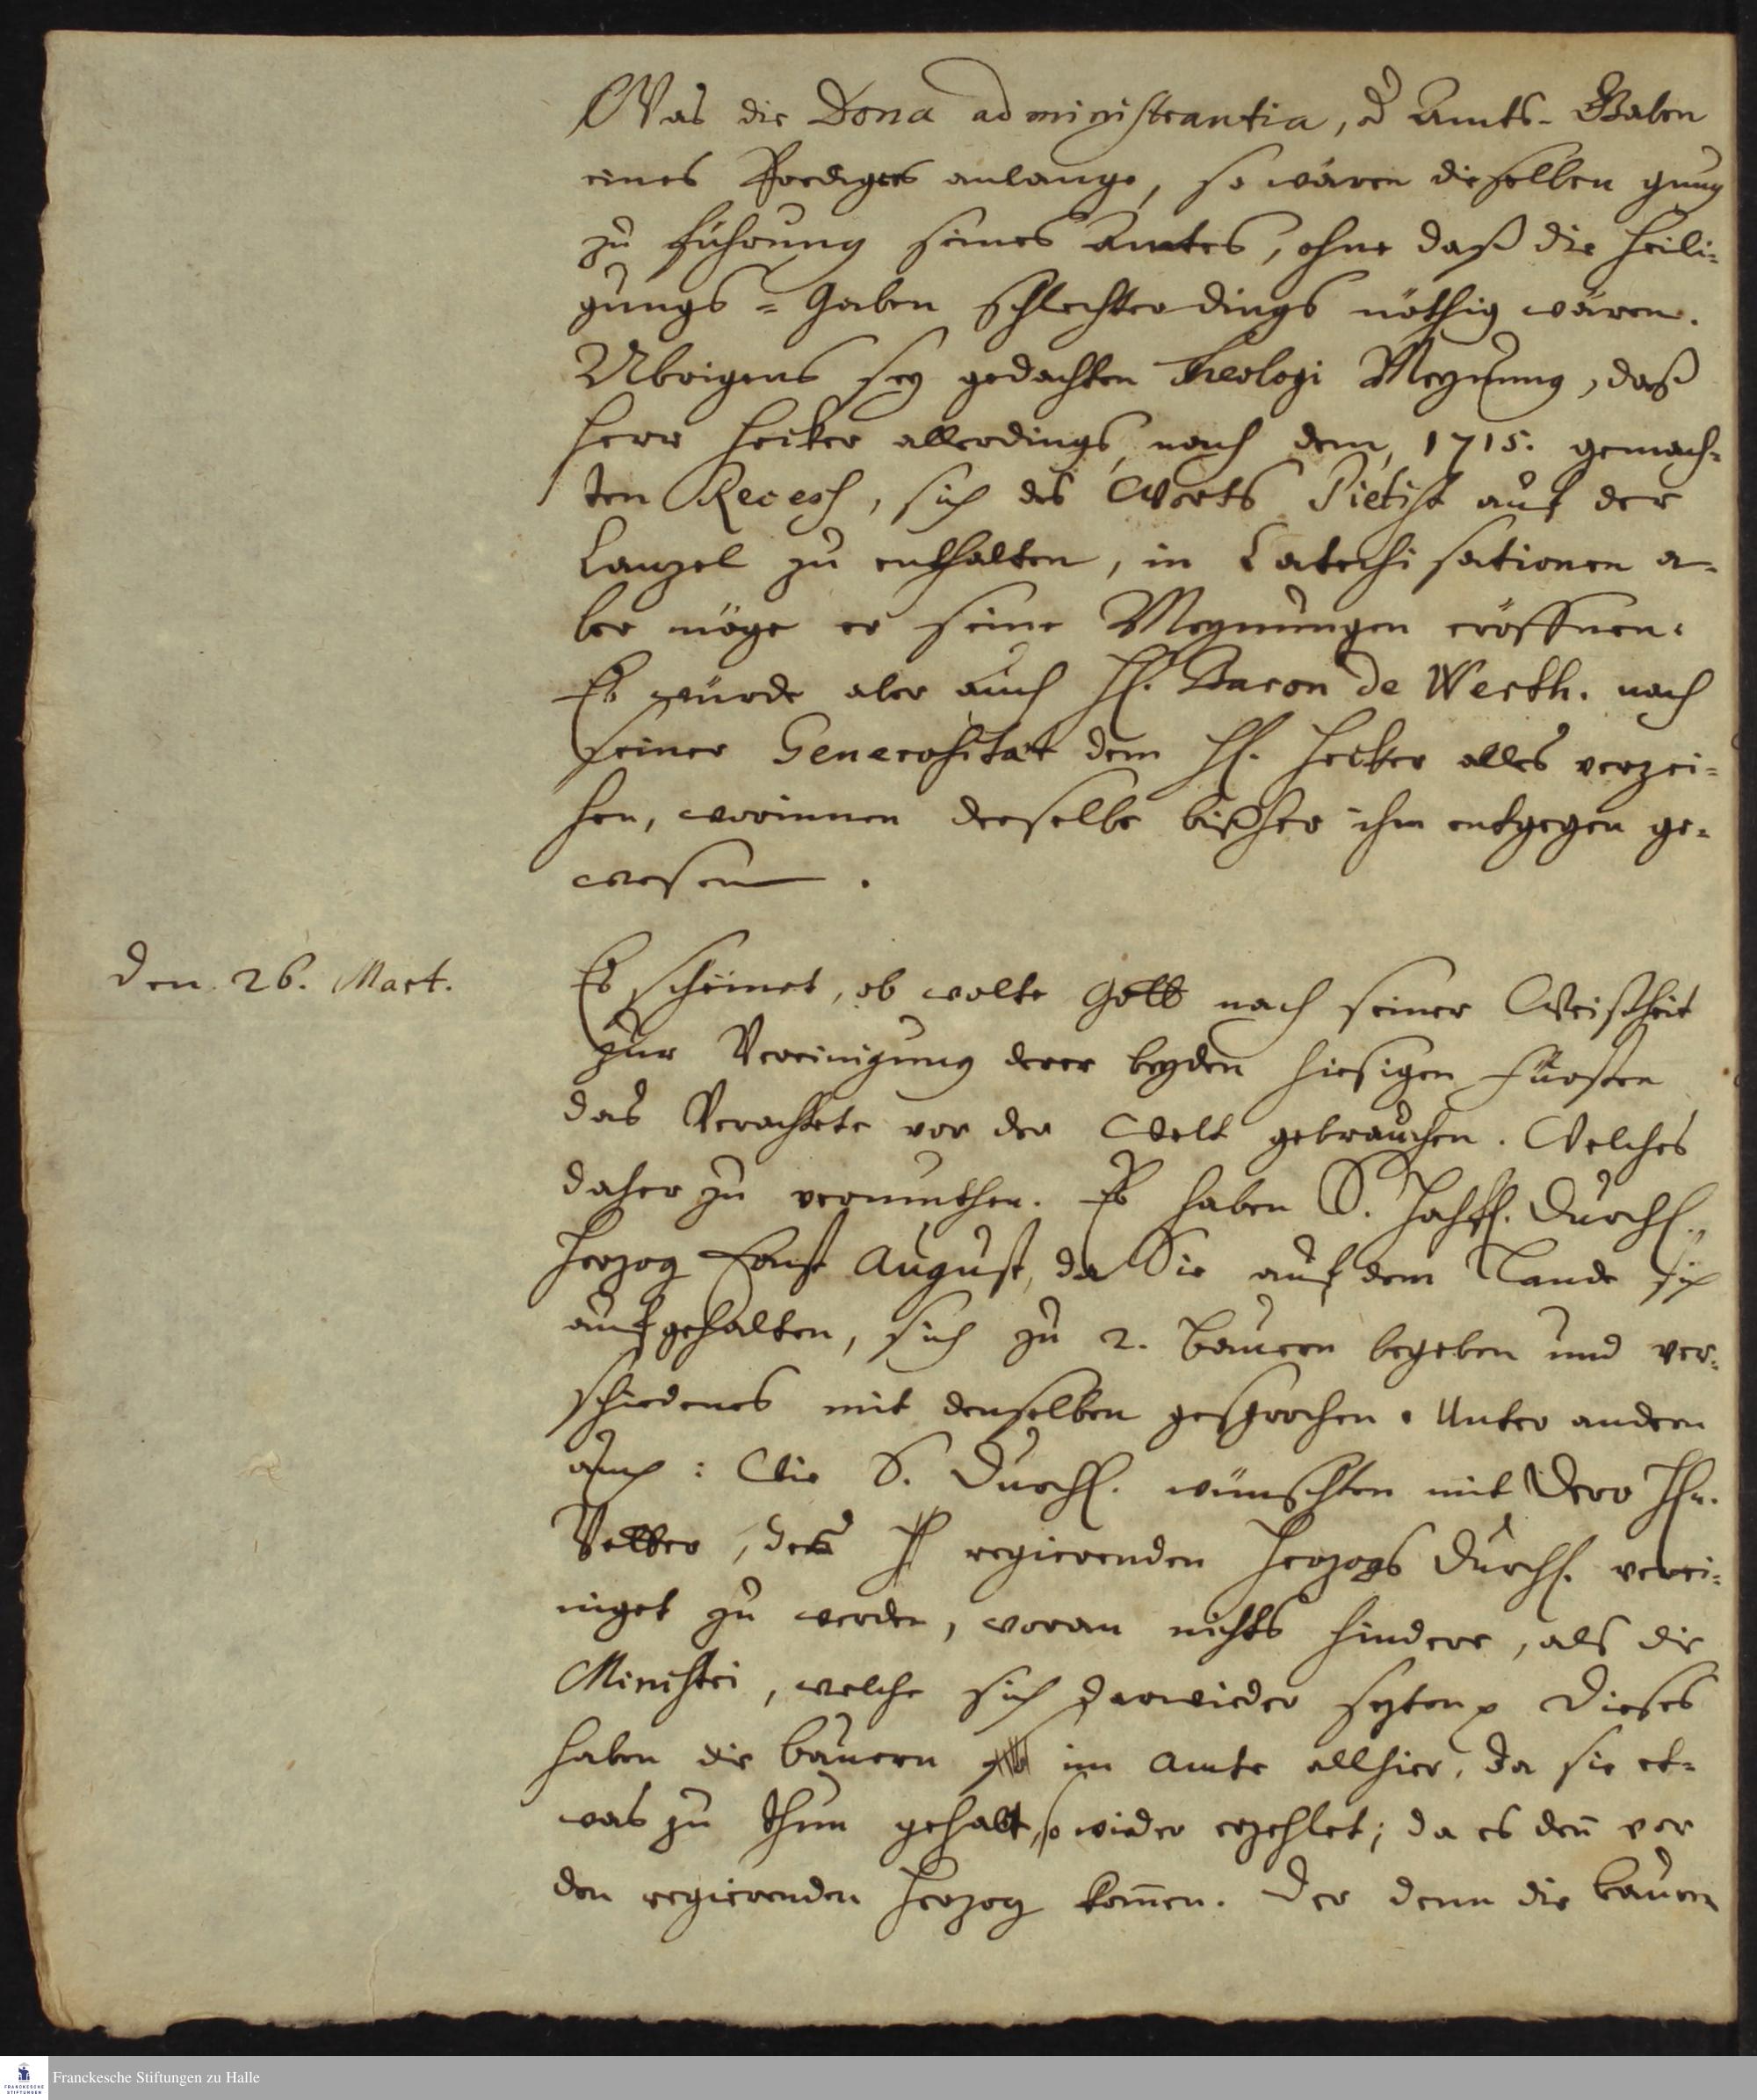 Was die Dona administrantia, od Amts-Gaben
eines Predigers anlange, so wären dieselben gnug
zu Führung seines Amtes, ohne daß die Heili-
gungs-Gaben schlechterdings nöthig wären.
Ubrigens sey gedachten Theologi Meynung, daß
Herr Hecker allerdings nach dem, 1715. gemach-
ten Recess, sich des Worts Pietist auf der
Canzel zu enthalten, in Catechisationen a-
ber möge er seine Meynungen eröffnen.
Es würde aber auch H. Baron de Werth. nach
seiner Generosität dem H. Hecker alles verzei-
hen, worinnen derselbe bißher ihm entgegen ge-
wesen.
den 26. Mart.
Es scheinet, ob wolte Gott nach seiner Weißheit
zur Vereinigung derer beyden hiesigen Fürsten
das Verachtete vor der Welt gebrauchen. Welches
daher zu vermuthen. Es haben S. Hochf. Durchl.
Herzog Ernst August, da Sie auf dem Lande sich
aufgehalten, sich zu 2. Bauern begeben und ver-
schiedenes mit denselben gesprochen. Unter andern
auch: Wie S. Durchl. wünschten mit Dero Hn.
Vetter, des regierenden Herzogs Durchl. verei-
niget zu werden, woran nichts hindere, als die
Ministri, welche sich darwieder setzten. Dieses
haben die Bauern im Amte allhier, da sie et-
was zu thun gehabt, so wieder erzehlet; da es den vor
den regierenden Herzog komen. Der denn die Bauern
Franckesche Stiftungen zu Halle
FRANCKESCHE
STIFTUNGEN